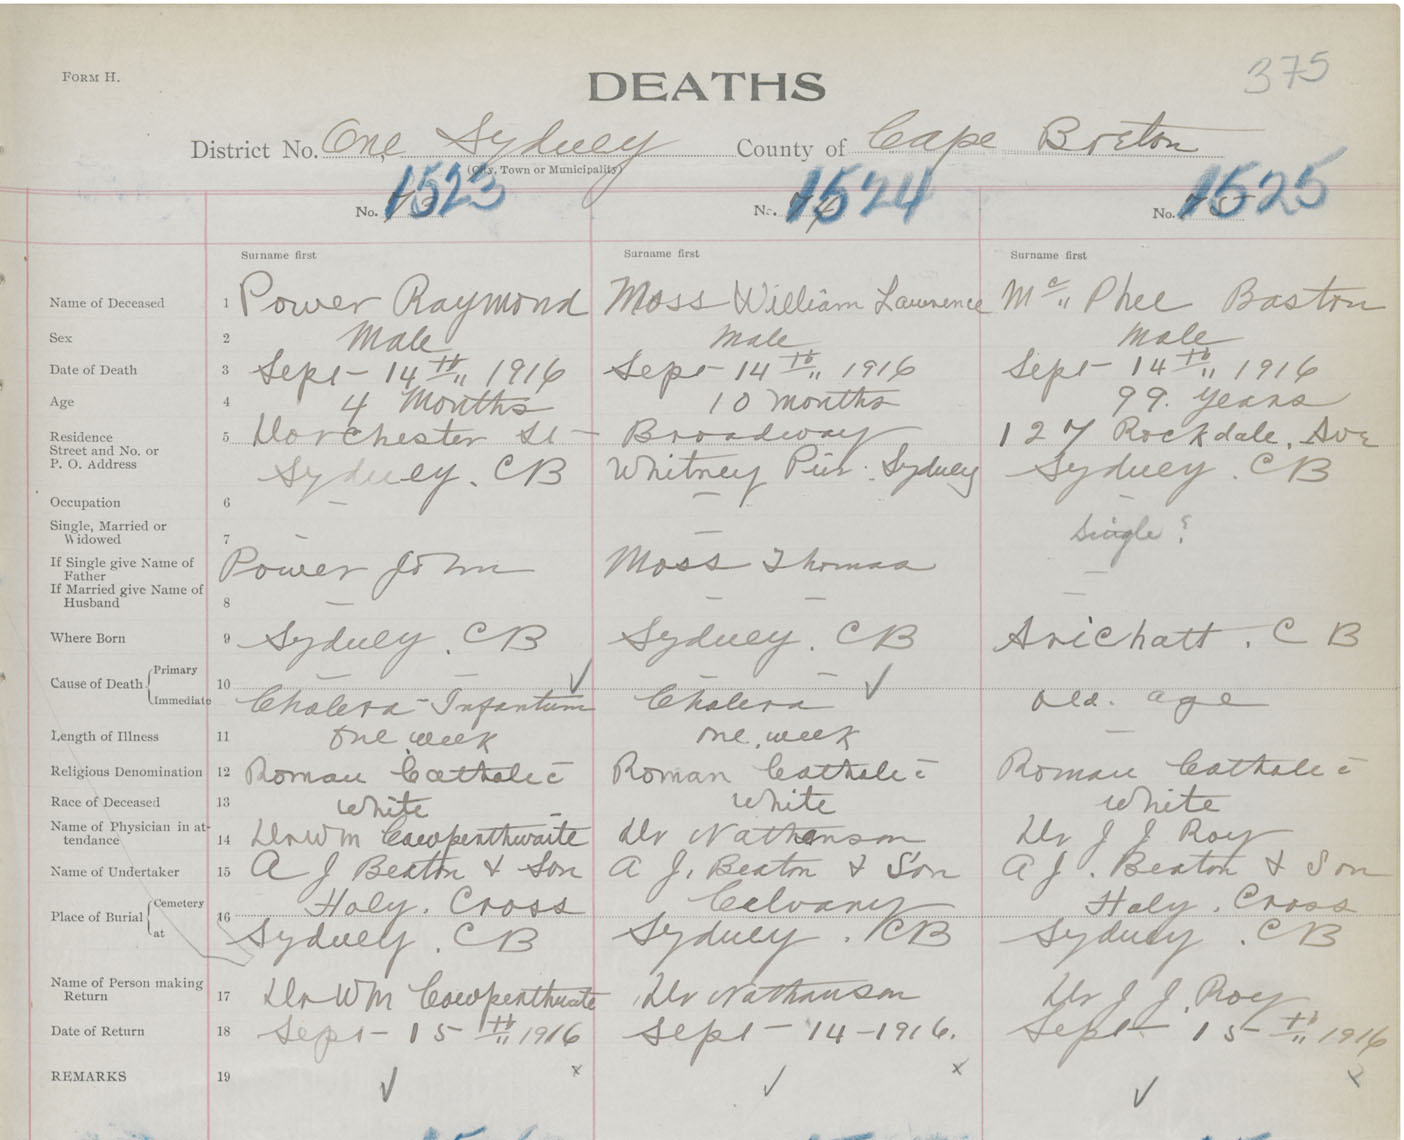 FORM H.
DEATHS
375
District No. One Sydney County of Cape Breton
(City, Town or Municipality)
No. 1523 No. 1524 No. 1525
Surname first Surname first Surname first
Name of Deceased 1 Power Raymond Moss William Lawrence Mc Phee Baston
Sex 2 Male Male Male
Date of Death 3 Sept - 14th 1916 Sept - 14th 1916 Sept - 14th 1916
Age 4 4 Months 10 months 99. years
Residence 5 Dorchester St - Broadway 127 Rockdale. Ave
Street and No. or
P. O. Address Sydney. CB Whitney Pier. Sydney Sydney. CB
Occupation 6 — — —
Single, Married or
Widowed 7 — — Single ?
If Single give Name of
Father Power John Moss Thomas —
If Married give Name of
Husband 8 — — — —
Where Born 9 Sydney. CB Sydney. CB Arichatt. C B
Cause of Death { Primary 10 — — — —
Immediate Cholera - Infantum Cholera old. age
Length of Illness 11 one week one. week —
Religious Denomination 12 Roman Catholic Roman Catholic Roman Catholic
Race of Deceased 13 White White White
Name of Physician in at-
tendance 14 Dr Wm Cowperthwaite Dr Nathanson Dr J J Roy
Name of Undertaker 15 A J Beaton & Son A J. Beaton & Son A J. Beaton & Son
Place of Burial { Cemetery 16 Holy. Cross Calvary Holy. Cross
at Sydney. CB Sydney. CB Sydney. CB
Name of Person making
Return 17 Dr Wm Cowperthwate Dr Nathanson Dr J J. Roy
Date of Return 18 Sept - 15th 1916 Sept - 14 - 1916. Sept - 15th 1916
REMARKS 19 ✓ x ✓ x ✓ x